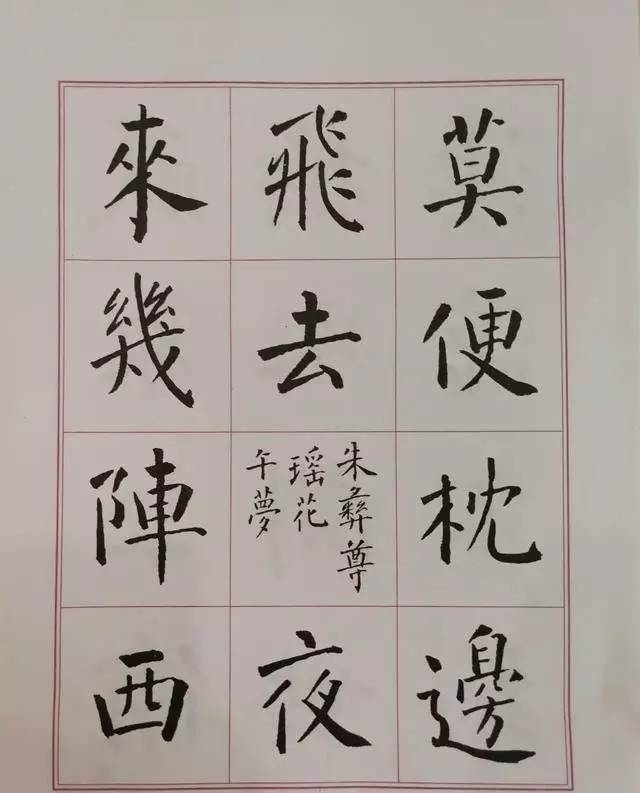 莫便枕邊
飛去
朱彝尊
瑶花
午夢
夜
來幾陣西